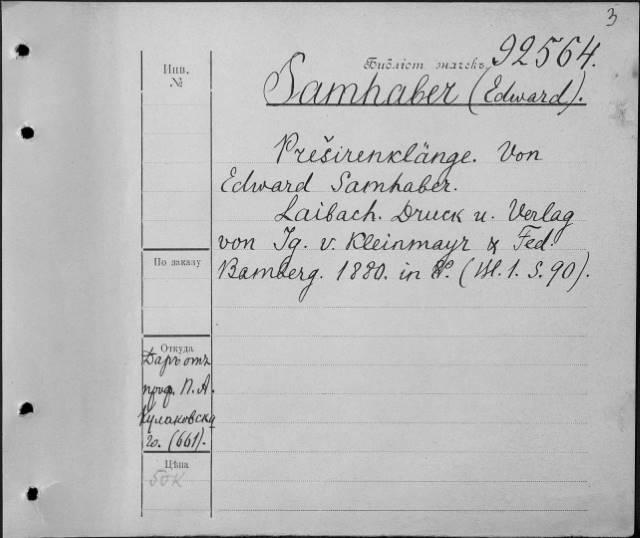 3
Инв.
№
Бібліот. значекъ 92564.
Samhaber (Edward).
Preširenklänge. Von
Edward Samhaber.
Laibach. Druck u. Verlag
von Ig. v. Kleinmayr & Fed.
Bamberg. 1880. in 8º. (Bl. 1. S. 90).
По заказу
Откуда
Даръ отъ
проф. П. А.
Кулаковска
го. (661).
Цѣна
50к